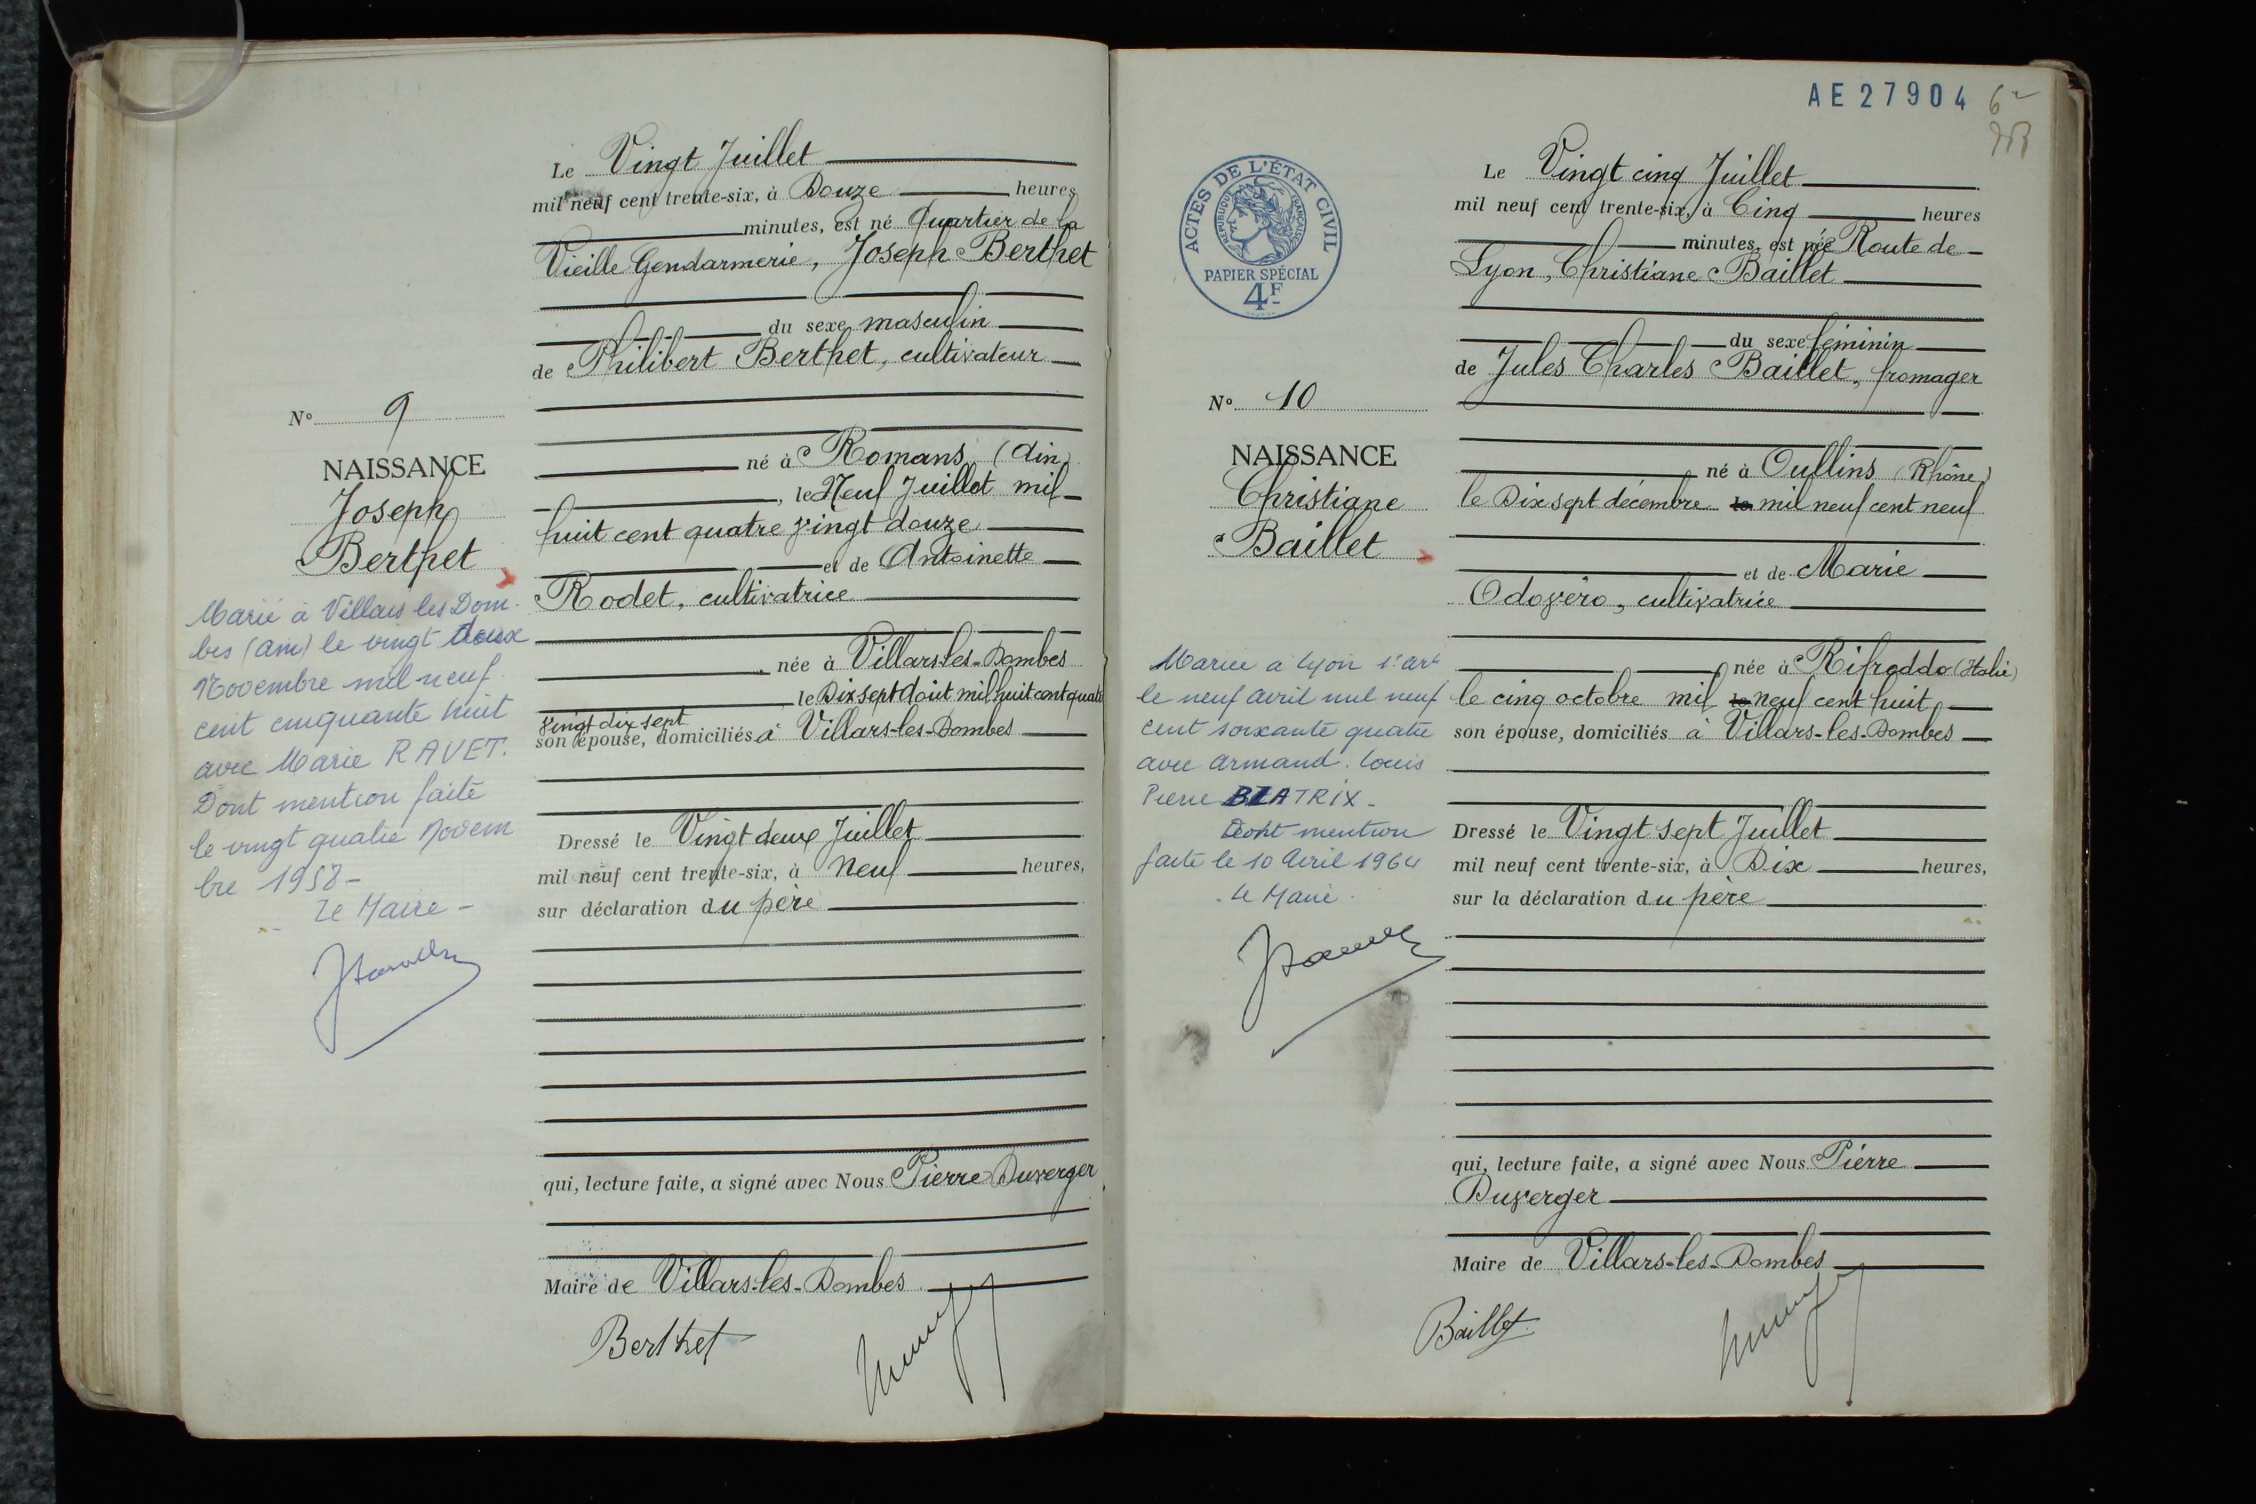 Le Vingt Juillet
mil neuf cent trente-six, à Douze heures
minutes, est né Quartier de la
Vieille Gendarmerie, Joseph Berthet
du sexe masculin
de Philibert Berthet, cultivateur
né à Romans (Ain)
, le Neuf Juillet mil
huit cent quatre vingt douze
et de Antoinette
Rodet, cultivatrice
née à Villars-les-Dombes
le Dix sept Août mil huit cent quatre
vingt dix sept
son épouse, domiciliés à Villars-les-Dombes
Dressé le Vingt deux Juillet
mil neuf cent trente-six, à Neuf heures,
sur déclaration du père
qui, lecture faite, a signé avec Nous Pierre Duverger
Maire de Villars-les-Dombes
Berthet
N° 9
NAISSANCE
Joseph
Berthet
Marié à Villars les Dom-
bes (Ain) le vingt deux
Novembre mil neuf
cent cinquante huit
avec Marie RAVET.
Dont mention faite
le vingt quatre Novem
bre 1958-
Le Maire-
AE27904
6
ACTES DE L'ÉTAT CIVIL
RÉPUBLIQUE FRANÇAISE
PAPIER SPÉCIAL
4F
Le Vingt cinq Juillet
mil neuf cent trente-six, à Cinq heures
minutes, est née Route de
Lyon, Christiane Baillet
du sexe féminin
de Jules Charles Baillet, fromager
né à Oullins (Rhône)
le Dix sept décembre le mil neuf cent neuf
et de Marie
Odovéro, cultivatrice
née à Rifreddo (Italie)
le cinq octobre mil le neuf cent huit
son épouse, domiciliés à Villars-les-Dombes
Dressé le Vingt sept Juillet
mil neuf cent trente-six, à Dix heures,
sur la déclaration du père
qui, lecture faite, a signé avec Nous Pierre
Duverger
Maire de Villars-les-Dombes
Baillet
N° 10
NAISSANCE
Christiane
Baillet
Mariée à Lyon 1er arrt
le neuf avril mil neuf
cent soixante quatre
avec Armand. Louis
Pierre BLATRIX-
Dont mention
faite le 10 Avril 1964
Le Maire.